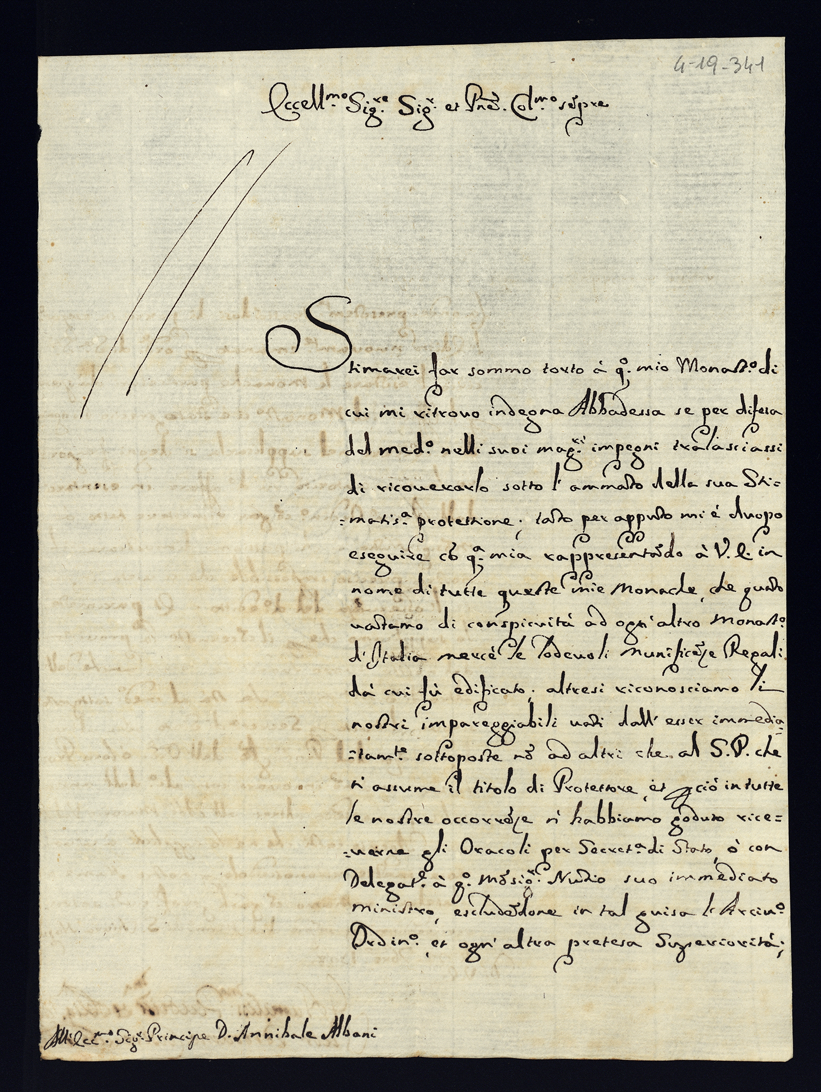 4-19-341
Eccell.mo Sig.re Sig.r et Pñe. Col.mo sẽpre
Stimarei far sommo torto à q.o mio Monast.o di
cui mi ritrovo indegna Abbadessa se per difesa
del med.o nelli suoi mag.ri impegni tralasciassi
di ricoverarlo sotto l'ammãto della sua Sti=
=matis.a protettione; tãto per appũto mi è d'uopo
eseguire cõ q.a mia rappresentãdo à V.E. in
nome di tutte queste mie Monache, che quãto
vãtamo di conspicuità ad ogn'altro Monast.o
d'Italia mercè le lodevoli munificẽze Regali
dà cui fù edificato; altresi riconosciamo li
nostri impareggiabili vãti dall'esser immedia=
=tam.te sottoposte nõ ad altri che al S.P. che
n'assume il titolo di Protettore, et p ciò in tutte
le nostre occorrẽze n'habbiamo goduto rice=
=verne gli Oracoli per Secret.a di Stato, ò con
Delegat.e à q.o Mõsig.r Nũtio suo immediato
ministro, escludẽdone in tal guisa l'Arciv.o
Ordin.o, et ogn'altra pretesa Superiorità;
All'Ecc.mo Sig.r Principe D. Annibale Albani